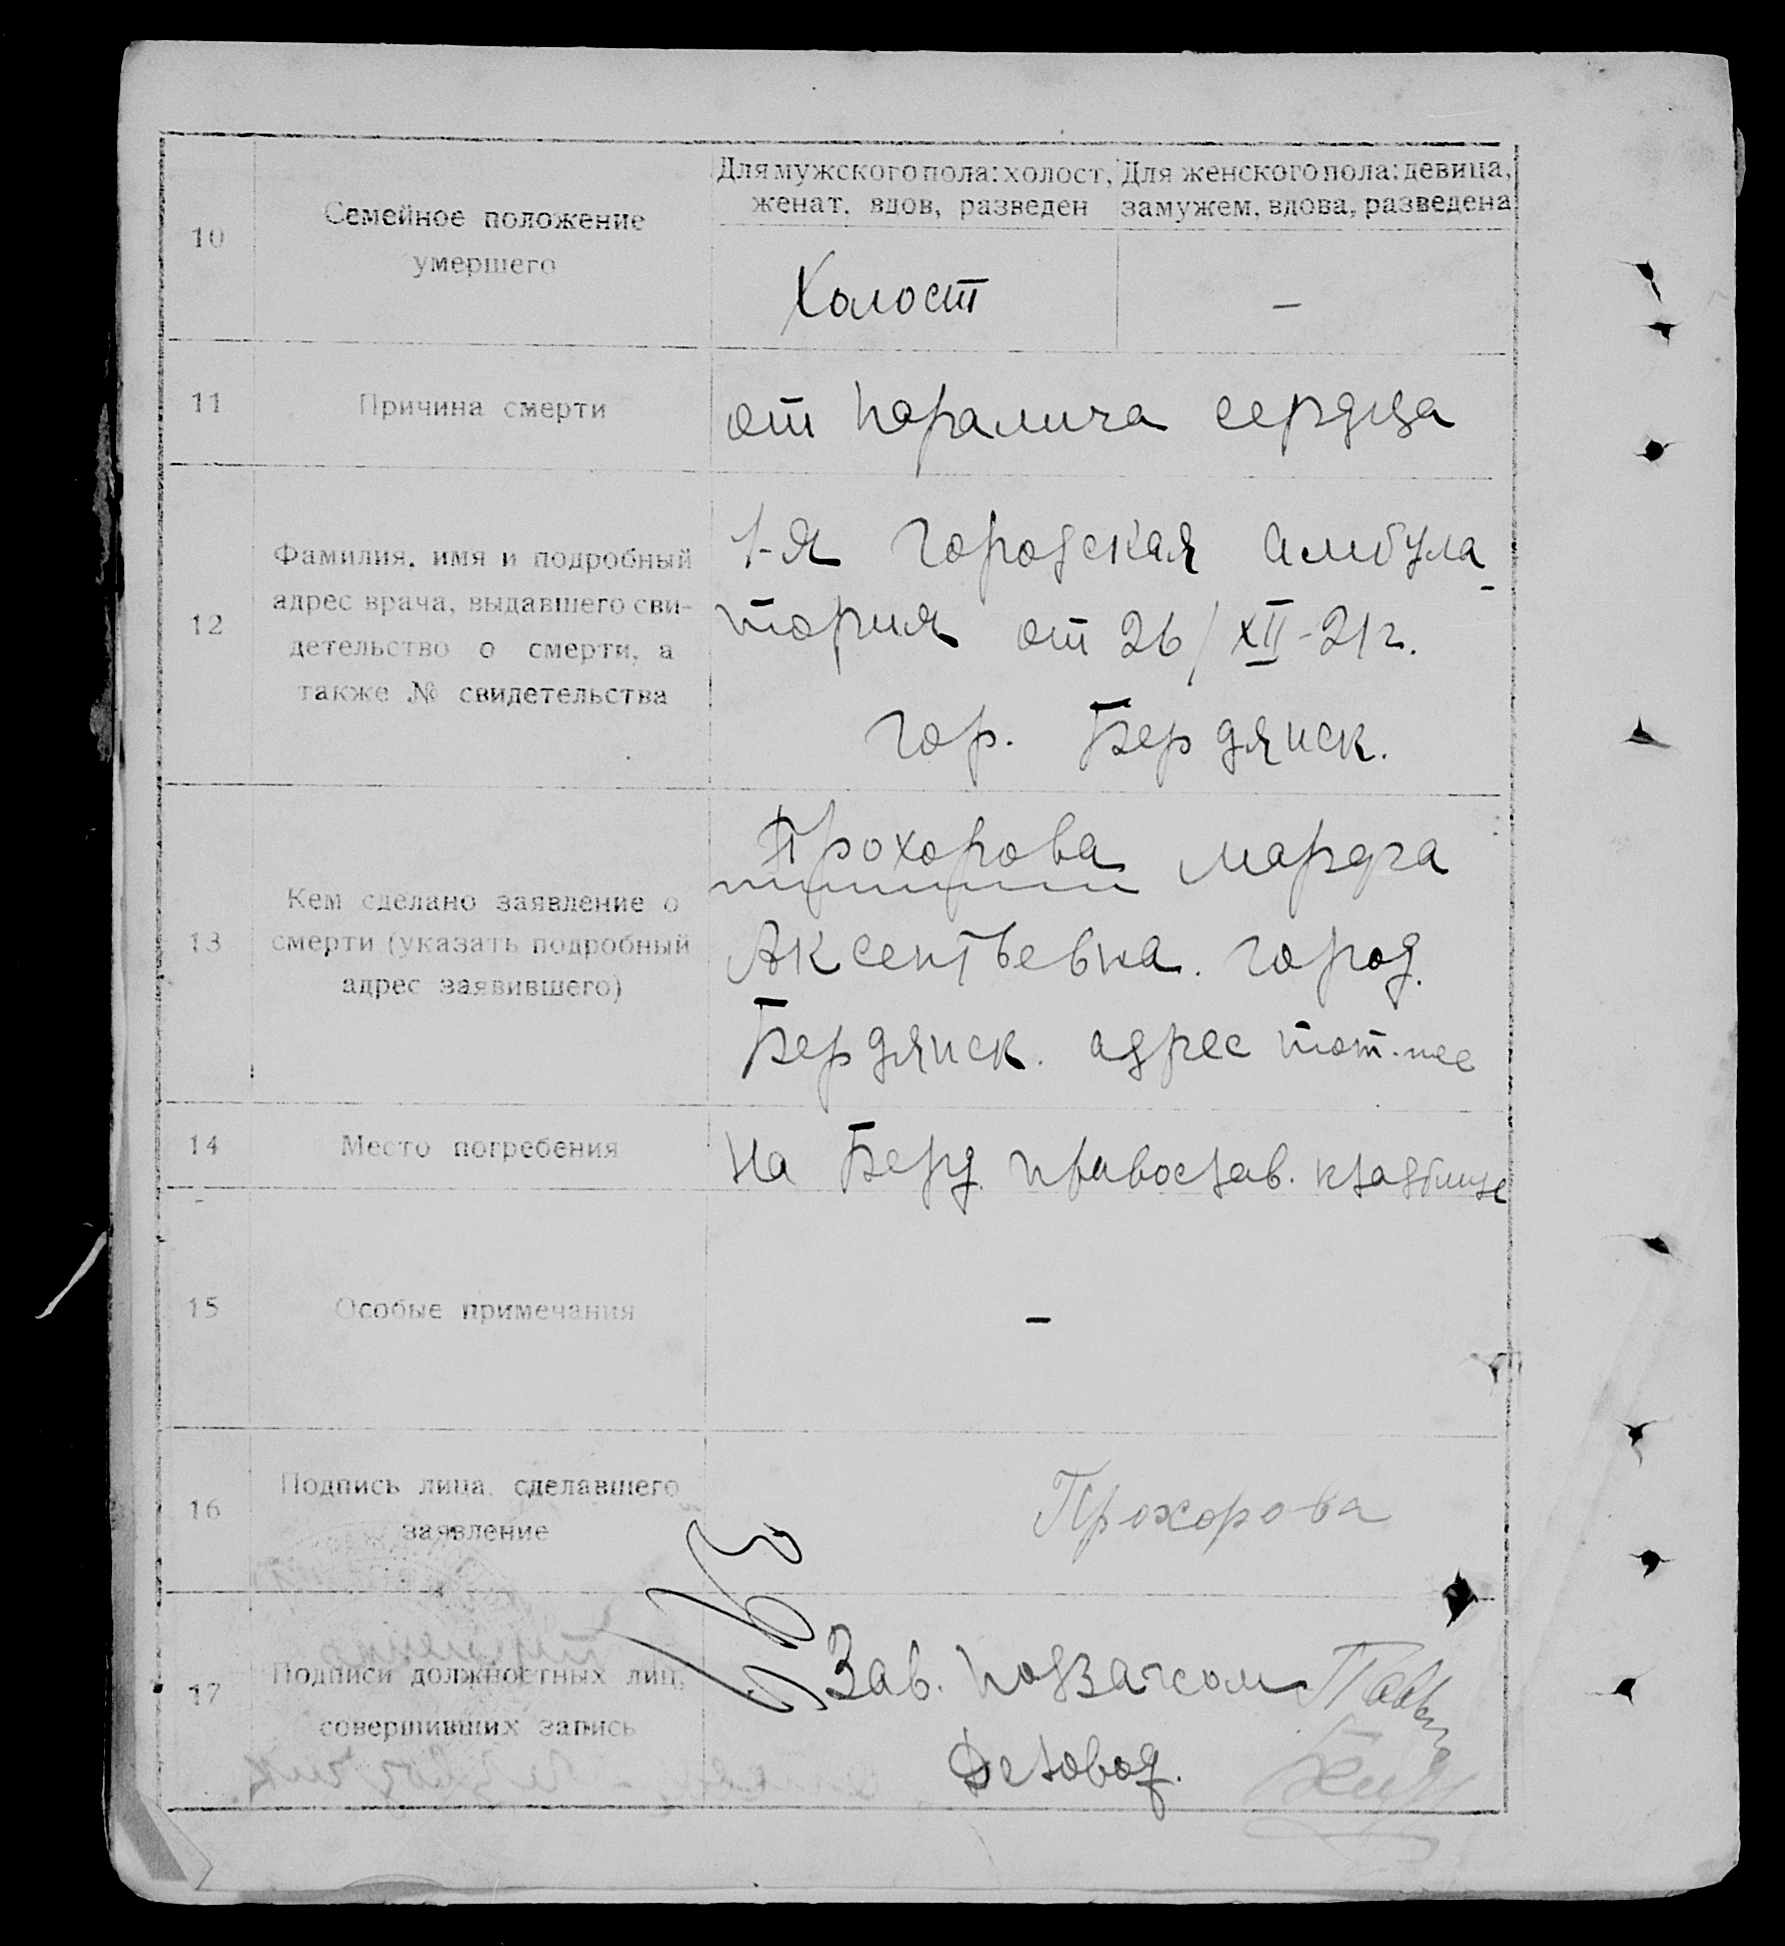 Для мужского пола: холост, женат, вдов, разведен
Для женского пола: девица, замужем, вдова, разведена
10
Семейное положение
умершего
Холост
–
11
Причина смерти
от паралича сердца
12
Фамилия, имя и подробный
адрес врача, выдавшего сви-
детельство о смерти, а
также № свидетельства
1-я городская амбула-
тория от 26/XII-21г.
гор. Бердянск.
13
Кем сделано заявление о
смерти (указать подробный
адрес заявившего)
Прохорова Марфа
Аксентьевна. город.
Бердянск. адрес тот-же
14
Место погребения
на Берд. православ. кладбище
15
Особые примечания
–
16
Подпись лица, сделавшего
заявление
Прохорова
17
Подписи должностных лиц,
совершивших запись
Зав. подзагсом
Деловод.